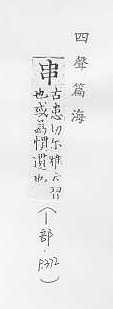 四聲篇海
串
古患切尔雅云習
也或爲慣也
(丨部·P.372)